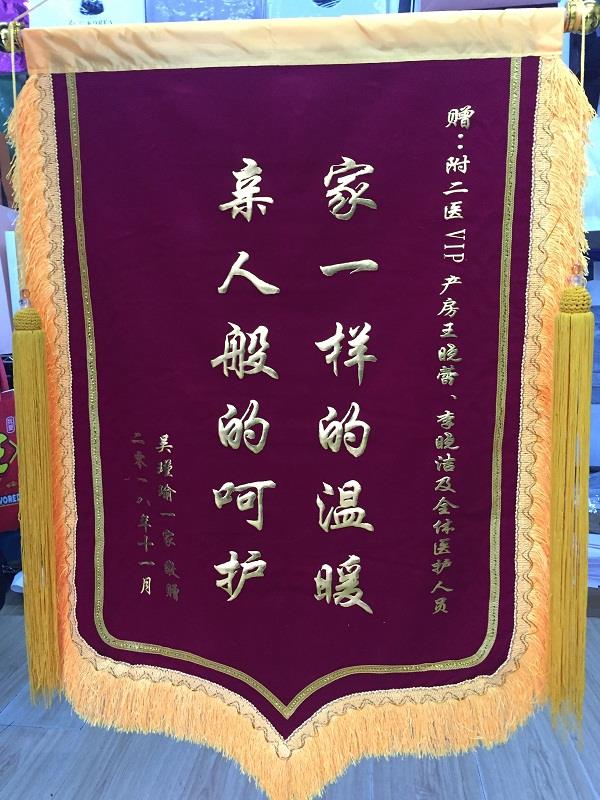 赠:附二医VIP产房王晓蕾、李晓洁及全体医护人员
家一样的温暖
亲人般的呵护
吴瑾瑜一家 敬赠
二零一八年十一月
KOREA